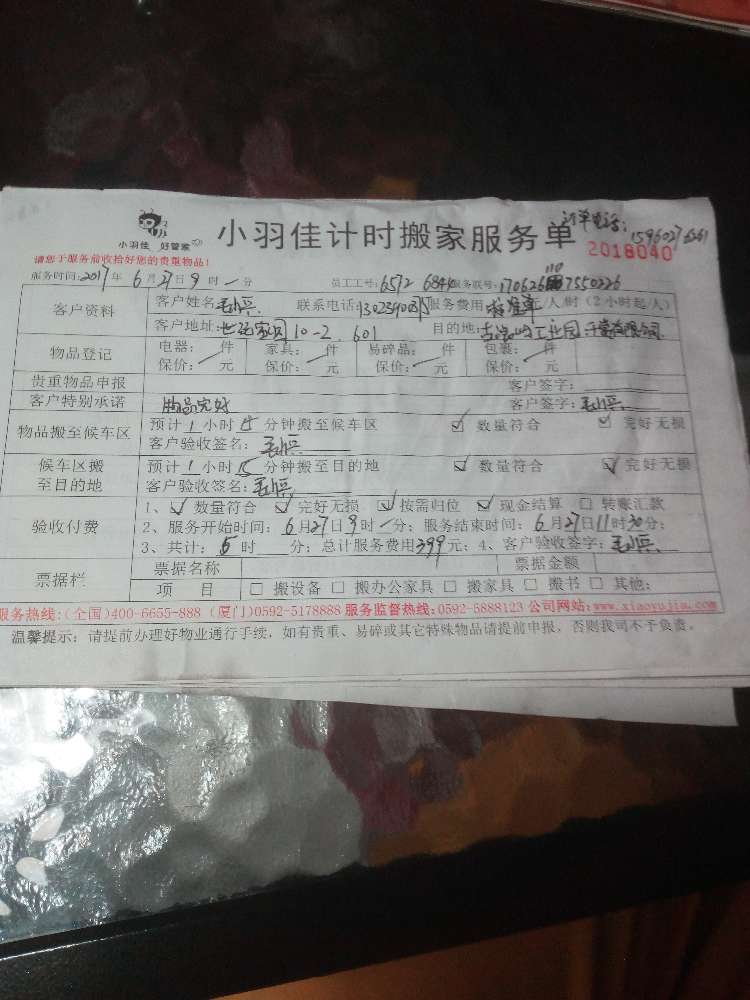 小羽佳 好管家
小羽佳计时搬家服务单
订单电话:
2018040
请您于服务前收拾好您的贵重物品!
服务时间:2017年6月27日9时一分 员工工号:6572 6844 服务联号:
客户资料 客户姓名: 联系电话: 服务费用: 元/人/时(2小时起/人)
客户地址:世纪家园10-2.601 目的地:
物品登记 电器: 件 家具: 件 易碎品: 件 包裹: 件
保价: 元 保价: 元 保价: 元 保价: 元
贵重物品申报 客户签字:
客户特别承诺 物品完好 客户签字:
物品搬至候车区 预计1小时15分钟搬至候车区 ☑ 数量符合 ☑ 完好无损
客户验收签名:
候车区搬至目的地 预计1小时15分钟搬至目的地 ☑ 数量符合 ☑ 完好无损
客户验收签名:
验收付费 1、☑ 数量符合 ☑ 完好无损 ☑ 按需归位 ☑ 现金结算 □ 转账汇款
2、服务开始时间:6月27日9时一分;服务结束时间:6月27日11时30分;
3、共计: 时 分;总计服务费用399元;4、客户验收签字:
票据栏 票据名称 票据金额
项 目 □ 搬设备 □ 搬办公家具 □ 搬家具 □ 搬书 □ 其他:
服务热线:(全国)400-6655-888 (厦门)0592-5178888 服务监督热线:0592-5888123 公司网站:www.xiaoyujia.com
温馨提示:请提前办理好物业通行手续,如有贵重、易碎或其它特殊物品请提前申报,否则我司不予负责。